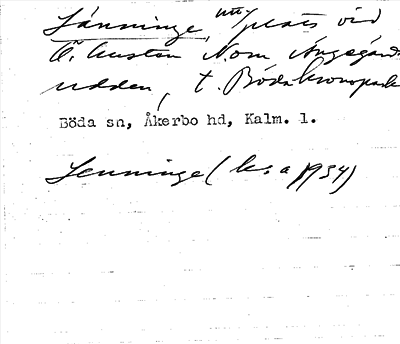 Länninge, utplats vid
Ö. kusten Nom Ängsgårds
udden, t. Böda kronopark
Böda sn, Åkerbo hd, Kalm. l.
Lenninge (ks. a 1934)